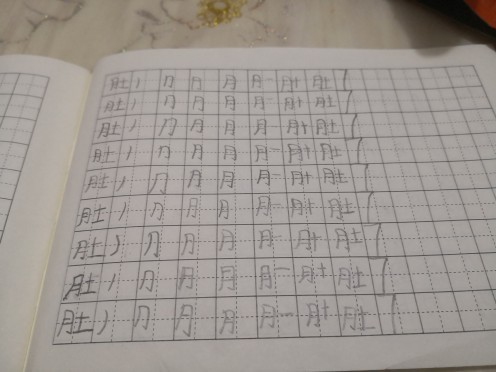 肚 丿 ⺆ 月 月 月一 月十 肚
肚 丿 ⺆ 月 月 月一 月十 肚
肚 丿 ⺆ 月 月 月 月十 肚
肚 丿 ⺆ 月 月 月一 月十 肚
肚 丿 ⺆ 月 月 月一 月十 肚
肚 丿 ⺆ 月 月 月一 月十 肚
肚 丿 ⺆ 月 月 月 月十 肚
肚 丿 ⺆ 月 月 月一 月十 肚
肚 丿 ⺆ 月 月 月一 月十 肚